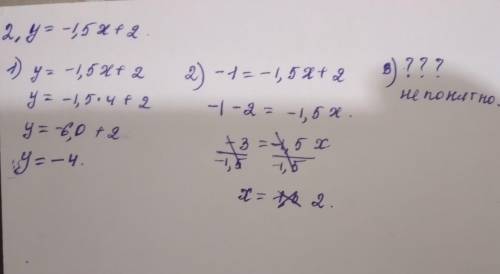 2, y = -1,5x + 2.
1) y = -1,5x + 2
y = -1,5·4 + 2
y = -6,0 + 2.
y = -4.
2) -1 = -1,5x + 2
-1 - 2 = -1,5x.
-3/-1,5 = -1,5x/-1,5
x = 2.
3) ???
непонятно.